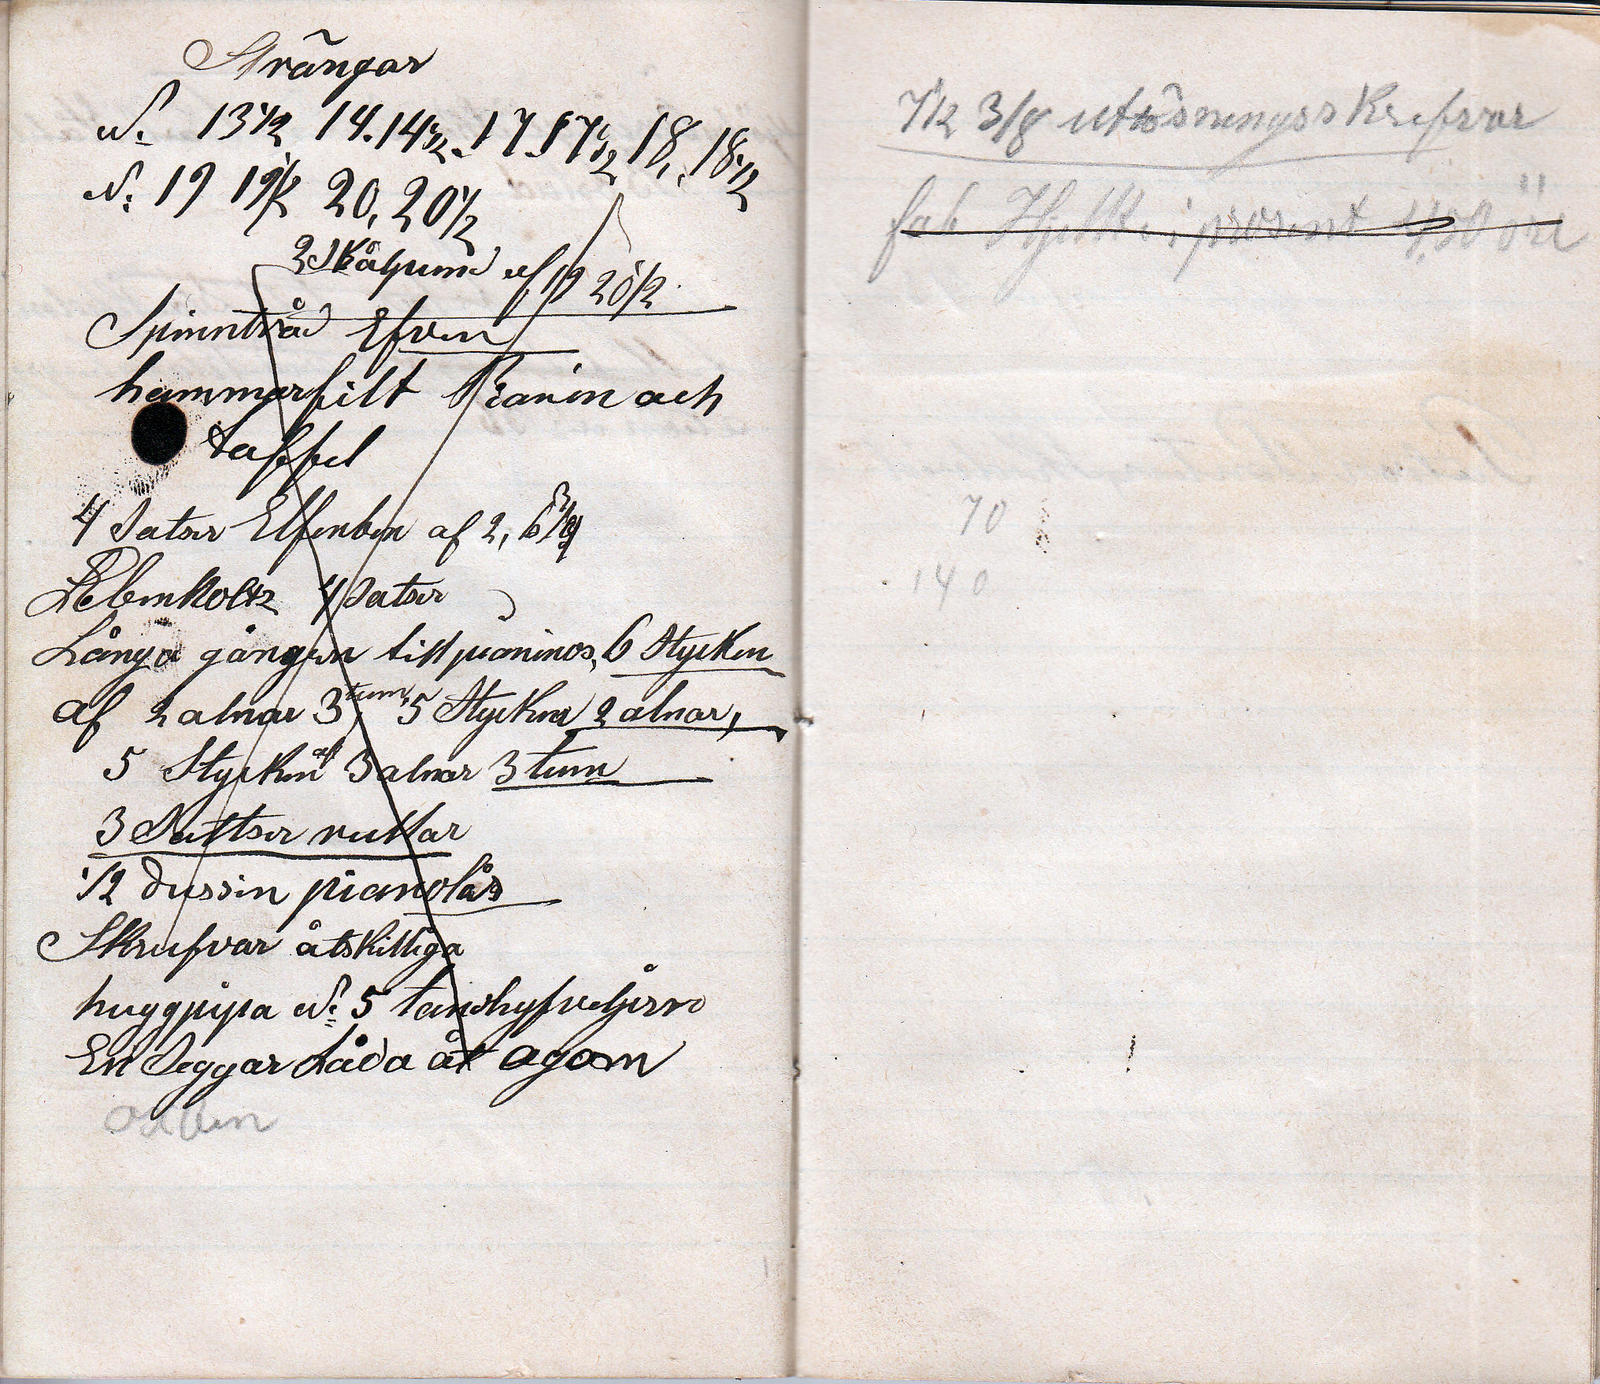 Strängar
N: 13 1/2 14. 14 1/2. 17. 17 1/2 18, 18 1/2
N: 19 19 1/2 20, 20 1/2
2 skålpund af 19 20 1/2
Spinntråd Efven
hammarfilt Pianin och
taffel
4 Satser Elfenben af 2, 6
Ebenholtz 4 Satser
Långa gångern till pianinos, 6 Stycken
af 2 alnar 3 tum, 5 Stycken 2 alnar,
5 Stycken af 3 alnar 3 tum
3 Sattser rullar
1/2 dussin pianolås
Skrufvar åtskilliga
huggpipa N: 5 tandhyfveljern
En Seggar Låda åt agam
7 1/2 3/8 utlösningsskrufvar
fab i prosent öre
70
140